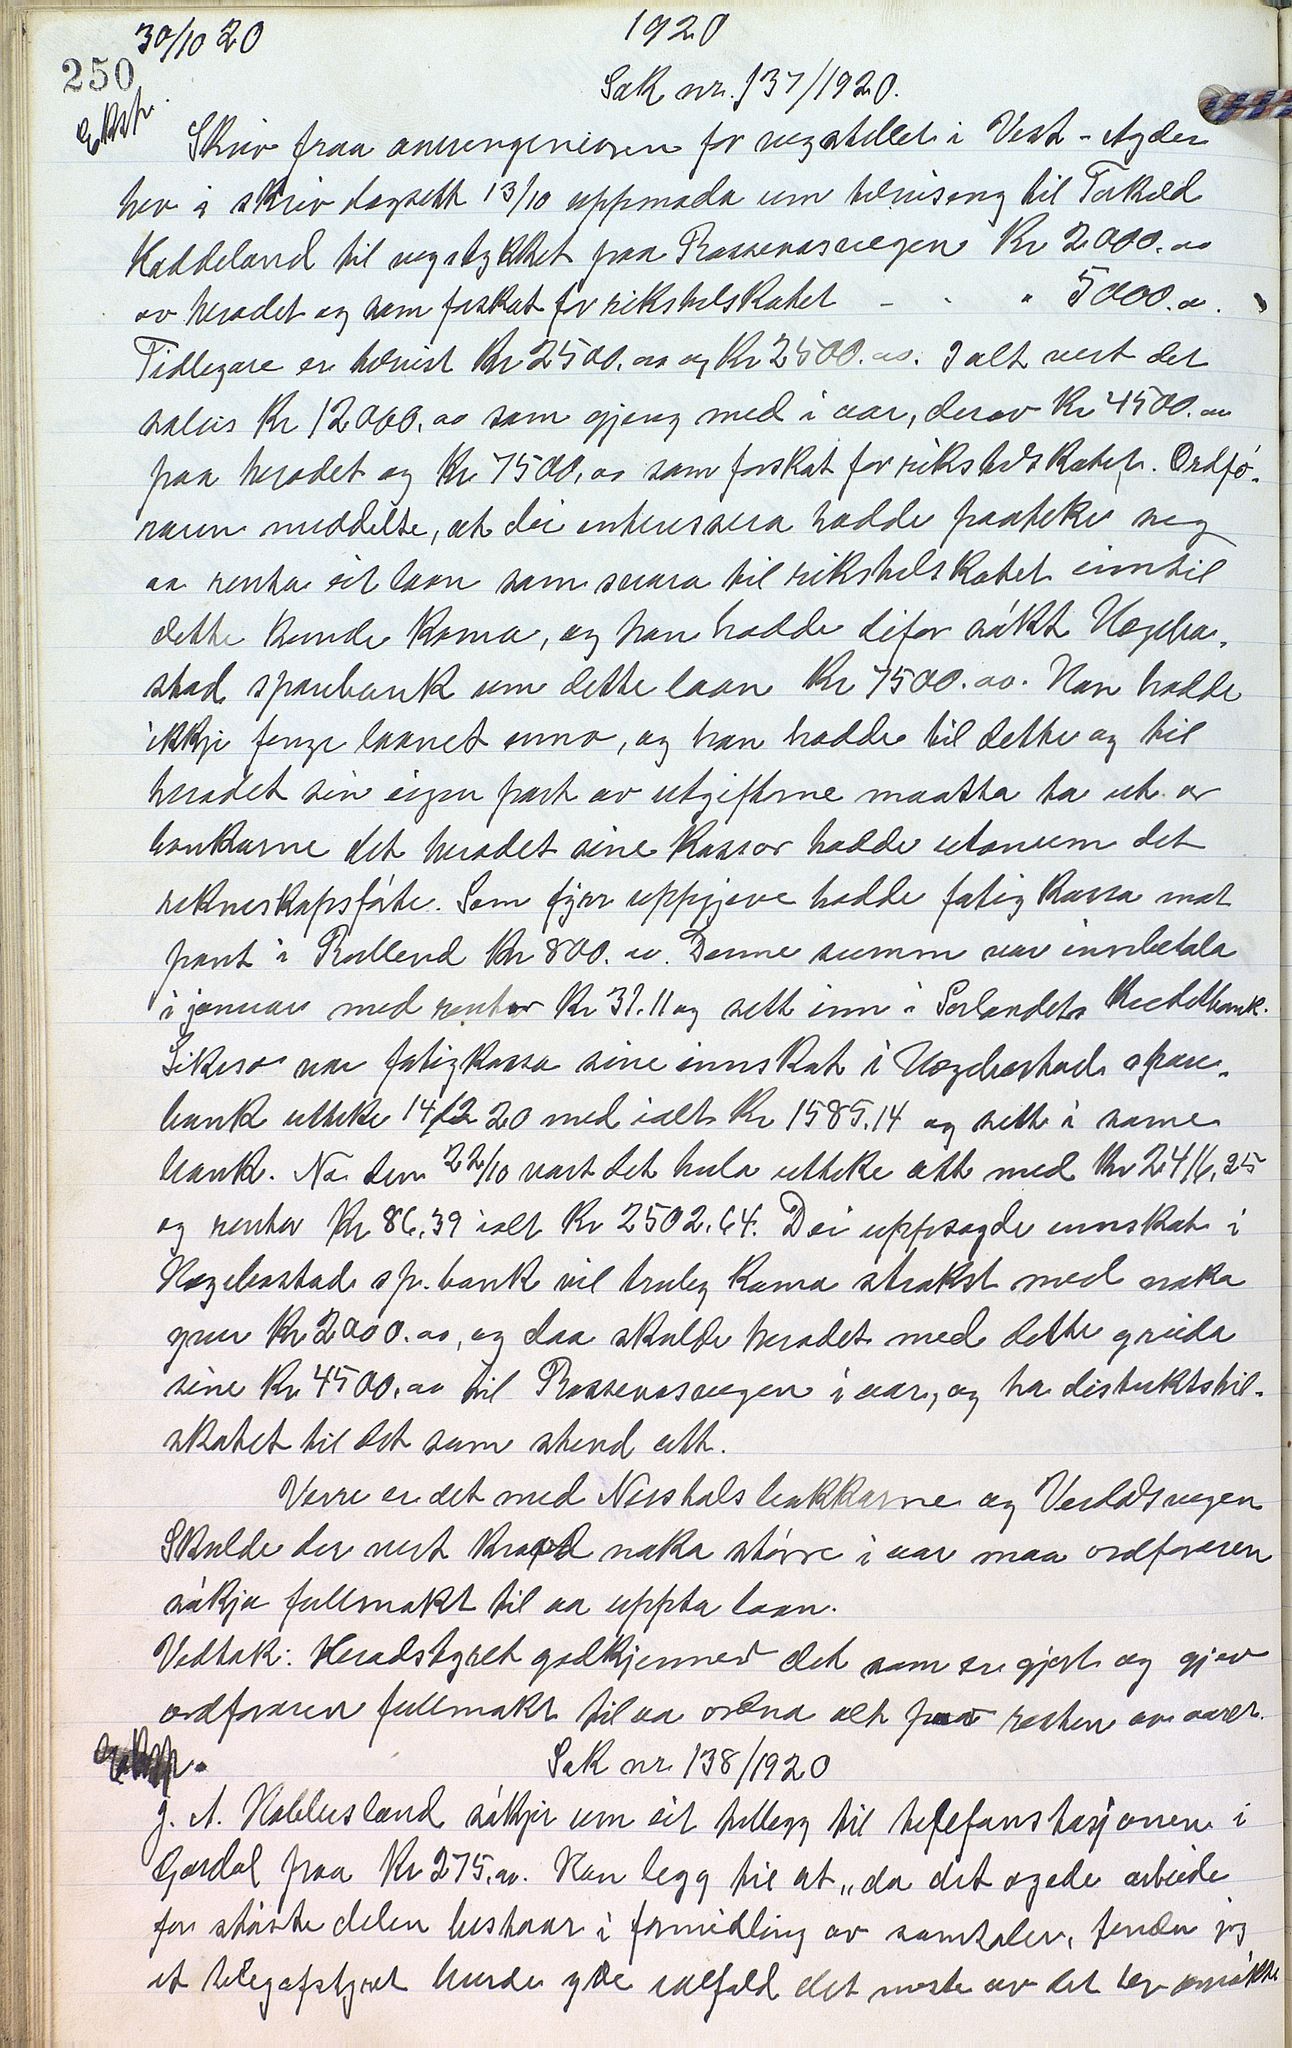 30/10 20 1920
250
Ekstr. Sak nr. 137/1920.
Skriv fraa avdelingen for vegstellet i Vest-Agder
hev i skriv dagsett 13/10 uppmoda um tilvising til Torkild
Haddeland til vegstykket paa Rossevasvegen Kr 2000.00
av heradet og som forskot for rikstilskotet - " " 5000.00.
Tidlegare er tilvist Kr 2500.00 og Kr 2500.00. I alt vert det
soleis Kr 12000.00 som gjeng med i aar, derav Kr 4500.00
paa heradet og Kr 7500.00 som forskot for rikstilskotet. Ordfø-
raren meddelte, at dei interessera hadde paateke seg
aa renta eit laan som svara til rikstilskotet inntil
dette kunde koma, og han hadde difor søkt Hægebo-
stad sparebank um dette laan Kr 7500.00. Han hadde
ikkje fenge laanet enno, og han hadde til dette og til
heradet sin eigen part av utgifterne maatta ta ut av
bankarne det heradet sine kassor hadde utanum det
rekneskapsførte. Som fyrr uppgjeve hadde fatigkassa mot
pant i Rulland Kr 800.00. Denne summen var innbetala
i januar med rentor Kr 31.11 og sett inn i Sørlandets Kreditbank.
Likeso var fatigkassa sine innskot i Hægebostad spare-
bank utteke 14/12 20 med ialt Kr 1585.14 og sett i same
bank. No den 22/10 vart det hela utteke att med Kr 2416,25
og rentor Kr 86.39 ialt Kr 2502.64. Dei uppsagde innskot i
Hægebostad sp.bank vil truleg koma strakst med noka
yver Kr 2000.00, og daa skulde heradet med dette greida
sine Kr 4500.00 til Rossevasvegen i aar, og ha distriktstil-
skotet til det som stend att.
Verre er det med Nesthalsbakkarne og Verdalsvegen
Skulde der vert kravd noka større i aar maa ordføraren
søkja fullmakt til aa uppta laan.
Vedtak: Heradstyret godkjenner det som er gjort og gjev
ordføraren fullmakt til aa ordna alt paa resten av aaret.
Ekstr. Sak nr. 138/1920
J. A. Hobbesland søkjer um eit tillegg til telefonstasjonen i
Gardal paa Kr 275.00. Han legg til at „da det øgede arbeide
for største delen bestaar i formidling av samtaler, finder jeg
at telegrafstyret burde yde ialfald det meste av det her ansøkte